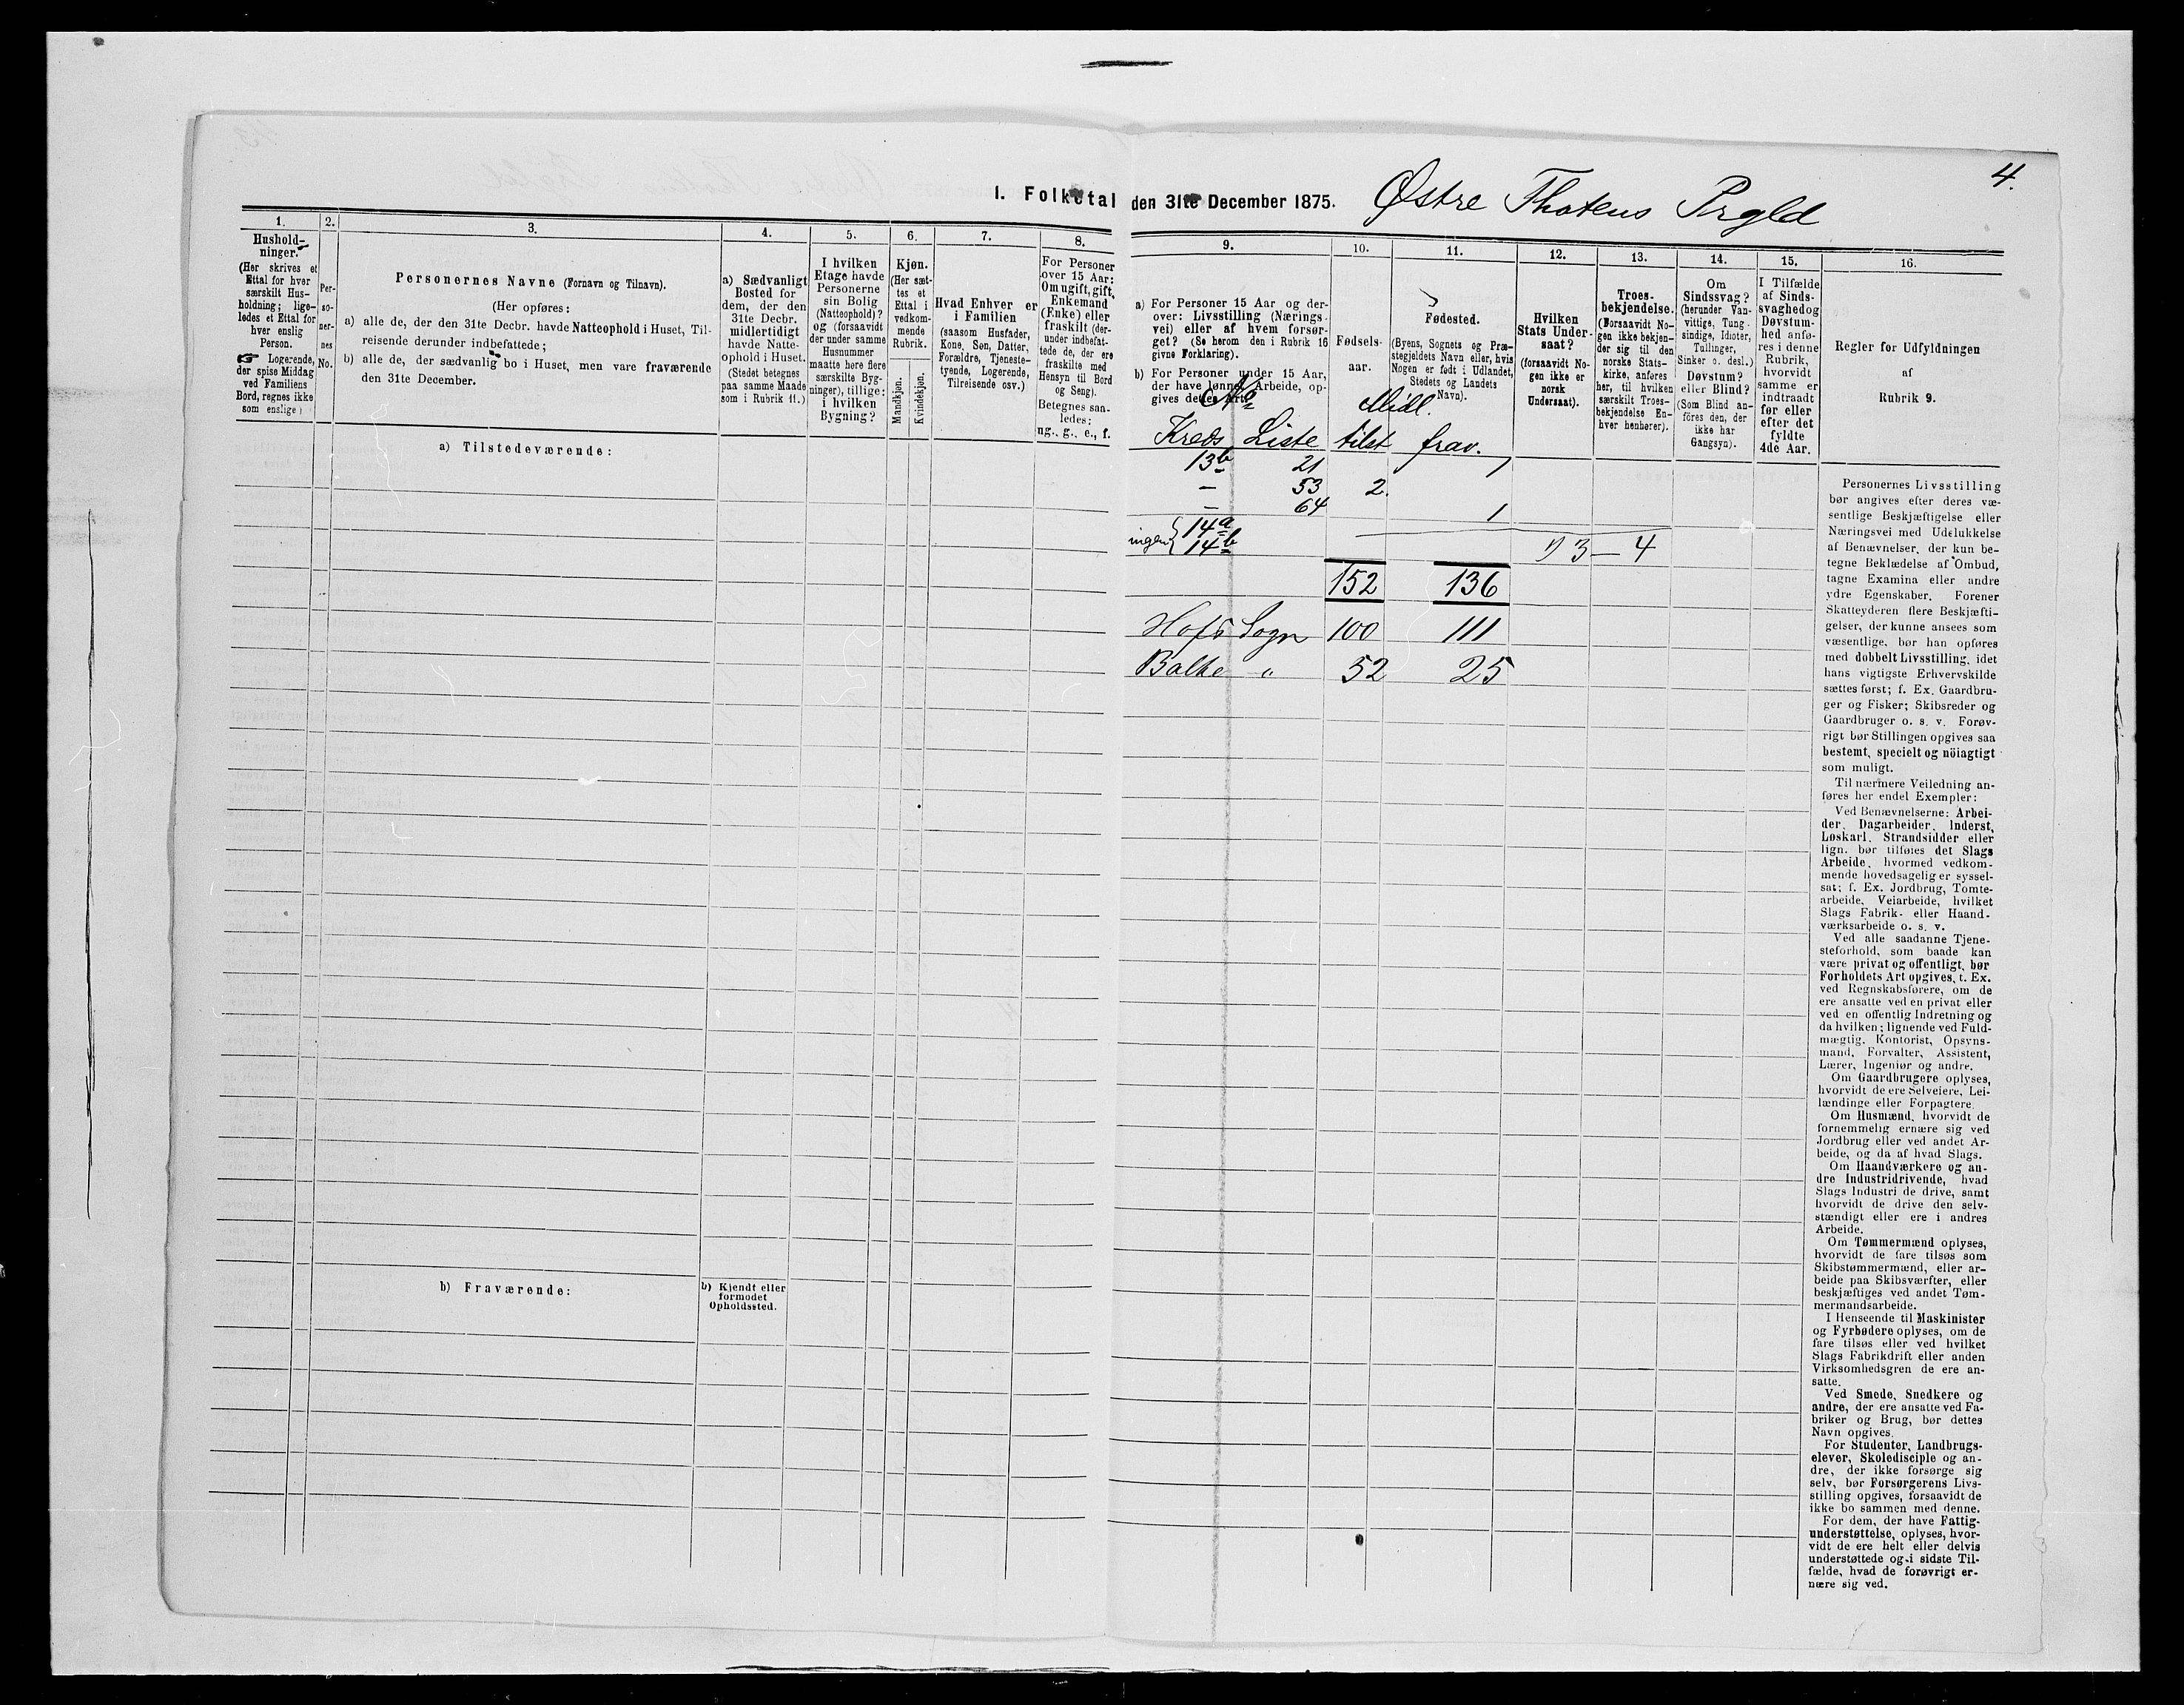 4.
I. Folketal den 31te December 1875. Østre Thotens Prgld
1.
Hushold-
ninger.
(Her skrives et
Ettal for hver
særskilt Hus-
holdning; lige-
ledes et Ettal for
hver enslig
Person.
☞ Logerende,
der spise Middag
ved Familiens
Bord, regnes ikke
som enslige)
2.
Per-
so-
ner-
nes
No.
3.
Personernes Navne (Fornavn og Tilnavn).
(Her opføres:
a) alle de, der den 31te Decbr. havde Natteophold i Huset, Til-
reisende derunder indbefattede;
b) alle de, der sædvanlig bo i Huset, men vare fraværende
den 31te December.
4.
a) Sædvanligt
Bosted for
dem, der den
31te Decbr.
midlertidigt
havde Natte-
ophold i Huset.
(Stedet betegnes
paa samme Maade
som i Rubrik 11.)
5.
I hvilken
Etage havde
Personerne
sin Bolig
(Natteophold)?
og (forsaavidt
der under samme
Husnummer
maatte høre flere
særskilte Byg-
ninger), tillige:
i hvilken
Bygning?
6.
Kjøn.
(Her sæt-
tes et
Ettal i
vedkom-
mende
Rubrik.
Mandkjøn.
Kvindekjøn.
7.
Hvad Enhver er
i Familien
(saasom Husfader,
Kone, Søn, Datter,
Forældre, Tjeneste-
tyende, Logerende,
Tilreisende osv.)
8.
For Personer
over 15 Aar:
Om ugift, gift,
Enkemand
(Enke) eller
fraskilt (der-
under indbefat-
tede de, der ere
fraskilte med
Hensyn til Bord
og Seng).
Betegnes saa-
ledes:
ug., g., e., f.
9.
a) For Personer 15 Aar og der-
over: Livsstilling (Nærings-
vei) eller af hvem forsør-
get? (Se herom den i Rubrik 16
givne Forklaring).
b) For Personer under 15 Aar,
der have lønnet Arbeide, op-
gives dettes Art.
10.
Fødsels-
aar.
11.
Fødested.
(Byens, Sognets og Præ-
stegjeldets Navn eller, hvis
Nogen er født i Udlandet,
Stedets og Landets
Navn).
12.
Hvilken
Stats Under-
saat?
(forsaavidt No-
gen ikke er
norsk
Undersaat).
13.
Troes-
bekjendelse.
(Forsaavidt No-
gen ikke bekjen-
der sig til den
norske Stats-
kirke, anføres
her, til hvilken
særskilt Troes-
bekjendelse En-
hver henhører).
14.
Om
Sindssvag?
(herunder Van-
vittige, Tung-
sindige, Idioter,
Tullinger,
Sinker o. desl.)
Døvstum?
eller Blind?
(Som Blind an-
føres den, der
ikke har
Gangsyn).
15.
I Tilfælde
af Sinds-
svaghed og
Døvstum-
hed anfø-
res i denne
Rubrik,
hvorvidt
samme er
indtraadt
før eller
efter det
fyldte
4de Aar.
16.
Regler for Udfyldningen
af
Rubrik 9.
a) Tilstedeværende:
No Midl.
Kreds Liste tilst frav.
13b 21 1
— 53 2.
— 64 1
14a
ingen 14b 1) 3 — 4
152 136
Hofs Sogn 100 111
Balke " 52 25
b) Fraværende:
b) Kjendt eller
formodet
Opholdssted.
Personernes Livsstilling
bør angives efter deres væ-
sentlige Beskjæftigelse eller
Næringsvei med Udelukkelse
af Benævnelser, der kun be-
tegne Beklædelse af Ombud,
tagne Examina eller andre
ydre Egenskaber. Forener
Skatteyderen flere Beskjæfti-
gelser, der kunne ansees som
væsentlige, bør han opføres
med dobbelt Livsstilling, idet
hans vigtigste Erhvervskilde
sættes først; f. Ex. Gaardbru-
ger og Fisker; Skibsreder og
Gaardbruger o. s. v. Forøv-
rigt bør Stillingen opgives saa
bestemt, specielt og nöiagtigt
som muligt.
Til nærmere Veiledning an-
føres her endel Exempler:
Ved Benævnelserne: Arbei-
der, Dagarbeider, Inderst,
Løskarl, Strandsidder eller
lign. bør tilføies det Slags
Arbeide, hvormed vedkom-
mende hovedsagelig er syssel-
sat; f. Ex. Jordbrug, Tomte-
arbeide, Veiarbeide, hvilket
Slags Fabrik- eller Haand-
værksarbeide o. s. v.
Ved alle saadanne Tjene-
steforhold, som baade kan
være privat og offentligt, bør
Forholdets Art opgives, t. Ex.
ved Regnskabsførere, om de
ere ansatte ved en privat eller
ved en offentlig Indretning og
da hvilken; lignende ved Fuld-
mægtig, Kontorist, Opsyns-
mand, Forvalter, Assistent,
Lærer, Ingeniør og andre.
Om Gaardbrugere oplyses,
hvorvidt de ere Selveiere, Lei-
lændinge eller Forpagtere
Om Husmænd, hvorvidt de
fornemmelig ernære sig ved
Jordbrug eller ved andet Ar-
beide, og da af hvad Slags.
Om Haandværkere og an-
dre Industridrivende, hvad
Slags Industri de drive, samt
hvorvidt de drive den selv-
stændigt eller ere i andres
Arbeide.
Om Tømmermænd oplyses,
hvorvidt de fare tilsøs som
Skibstømmermænd, eller ar-
beide paa Skibsværfter, eller
beskjæftiges ved andet Tøm-
mermandsarbeide.
I Henseende til Maskinister
og Fyrbødere oplyses, om de
fare tilsøs eller ved hvilket
Slags Fabrikdrift eller anden
Virksomhedsgren de ere an-
satte.
Ved Smede, Snedkere og
andre, der ere ansatte ved Fa-
briker og Brug, bør dettes
Navn opgives.
For Studenter, Landbrugs-
elever, Skoledisciple og an-
dre, der ikke forsørge sig
selv, bør Forsørgerens Livs-
stilling opgives, forsaavidt de
ikke bo sammen med denne.
For dem, der have Fattig-
understøttelse, oplyses, hvor-
vidt de ere helt eller delvis
understøttede og i sidste Til-
fælde, hvad de forøvrigt er-
nære sig ved.